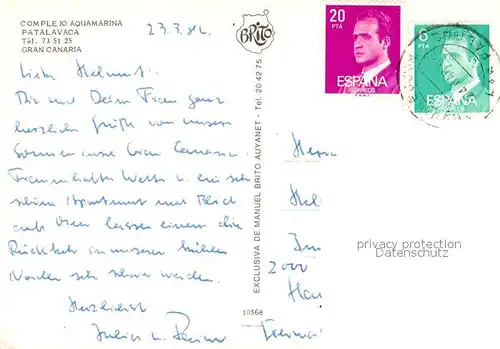 COMPLEJO AQUAMARINA
PATALAVACA
Tél. 73 51 25
GRAN CANARIA
23.3.82.
BRITO
20
PTA
ESPAÑA
CORREOS
6
PTA
ESPAÑA
CORREOS
Lieber Helmut!
Dir und Deiner Frau ganz
herzliche Grüße von unserer
Sonneninsel Gran Canaria.
Traumhaftes Wetter u. ein sehr
schönes Apartment mit Blick
aufs Meer lassen einem die
Rückkehr in unseren kühlen
Norden sehr schwer werden.
Herzlichst
Julius u.
EXCLUSIVA DE MANUEL BRITO AUYANET - Tel. 20 42 75
10568
Herrn
Hel
2000
Ham
privacy protection
Datenschutz